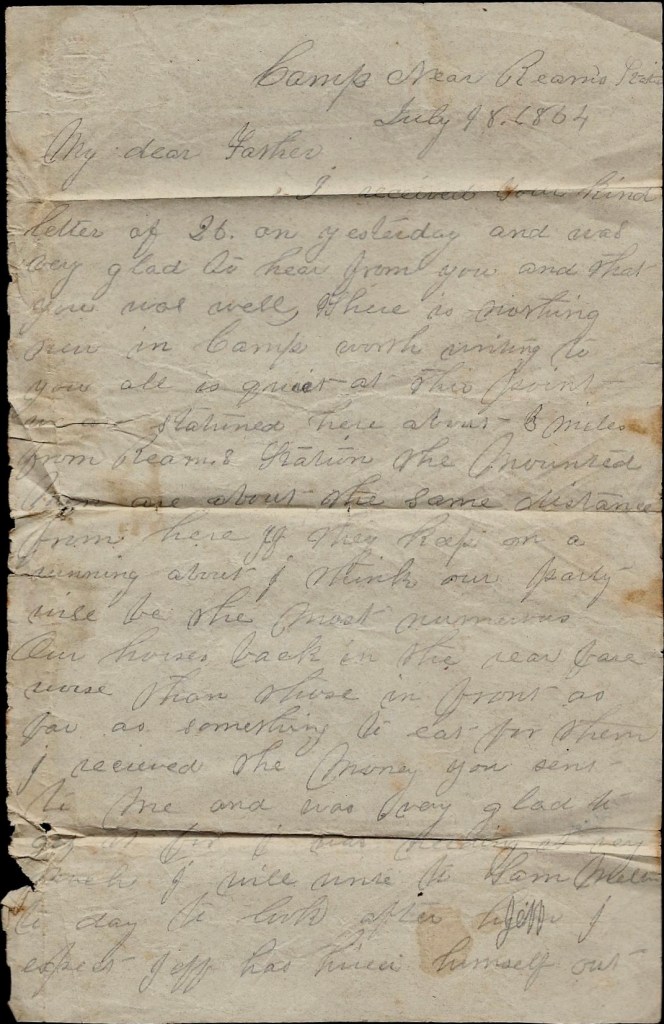 Camp Near Reams
July 18. 1864
My dear Father
I received your kind
letter of 26. on yesterday and was
very glad to hear from you and that
you was well, There is northing
new in Camp worth writing to
you all is quiet at this point
statuned here about 3 miles
from Reams Station the Mounted
are about the same distance
from here If they keep on a
running about I think our party
will be the most numerous
Our horses back in the rear fare
worse than those in front as
far as something to eat for them
I recieved the Money you sent
to me and was very glad to
I was very
much I will write to Sam
to day to look after Jeff I
expect Jeff has hired himself out